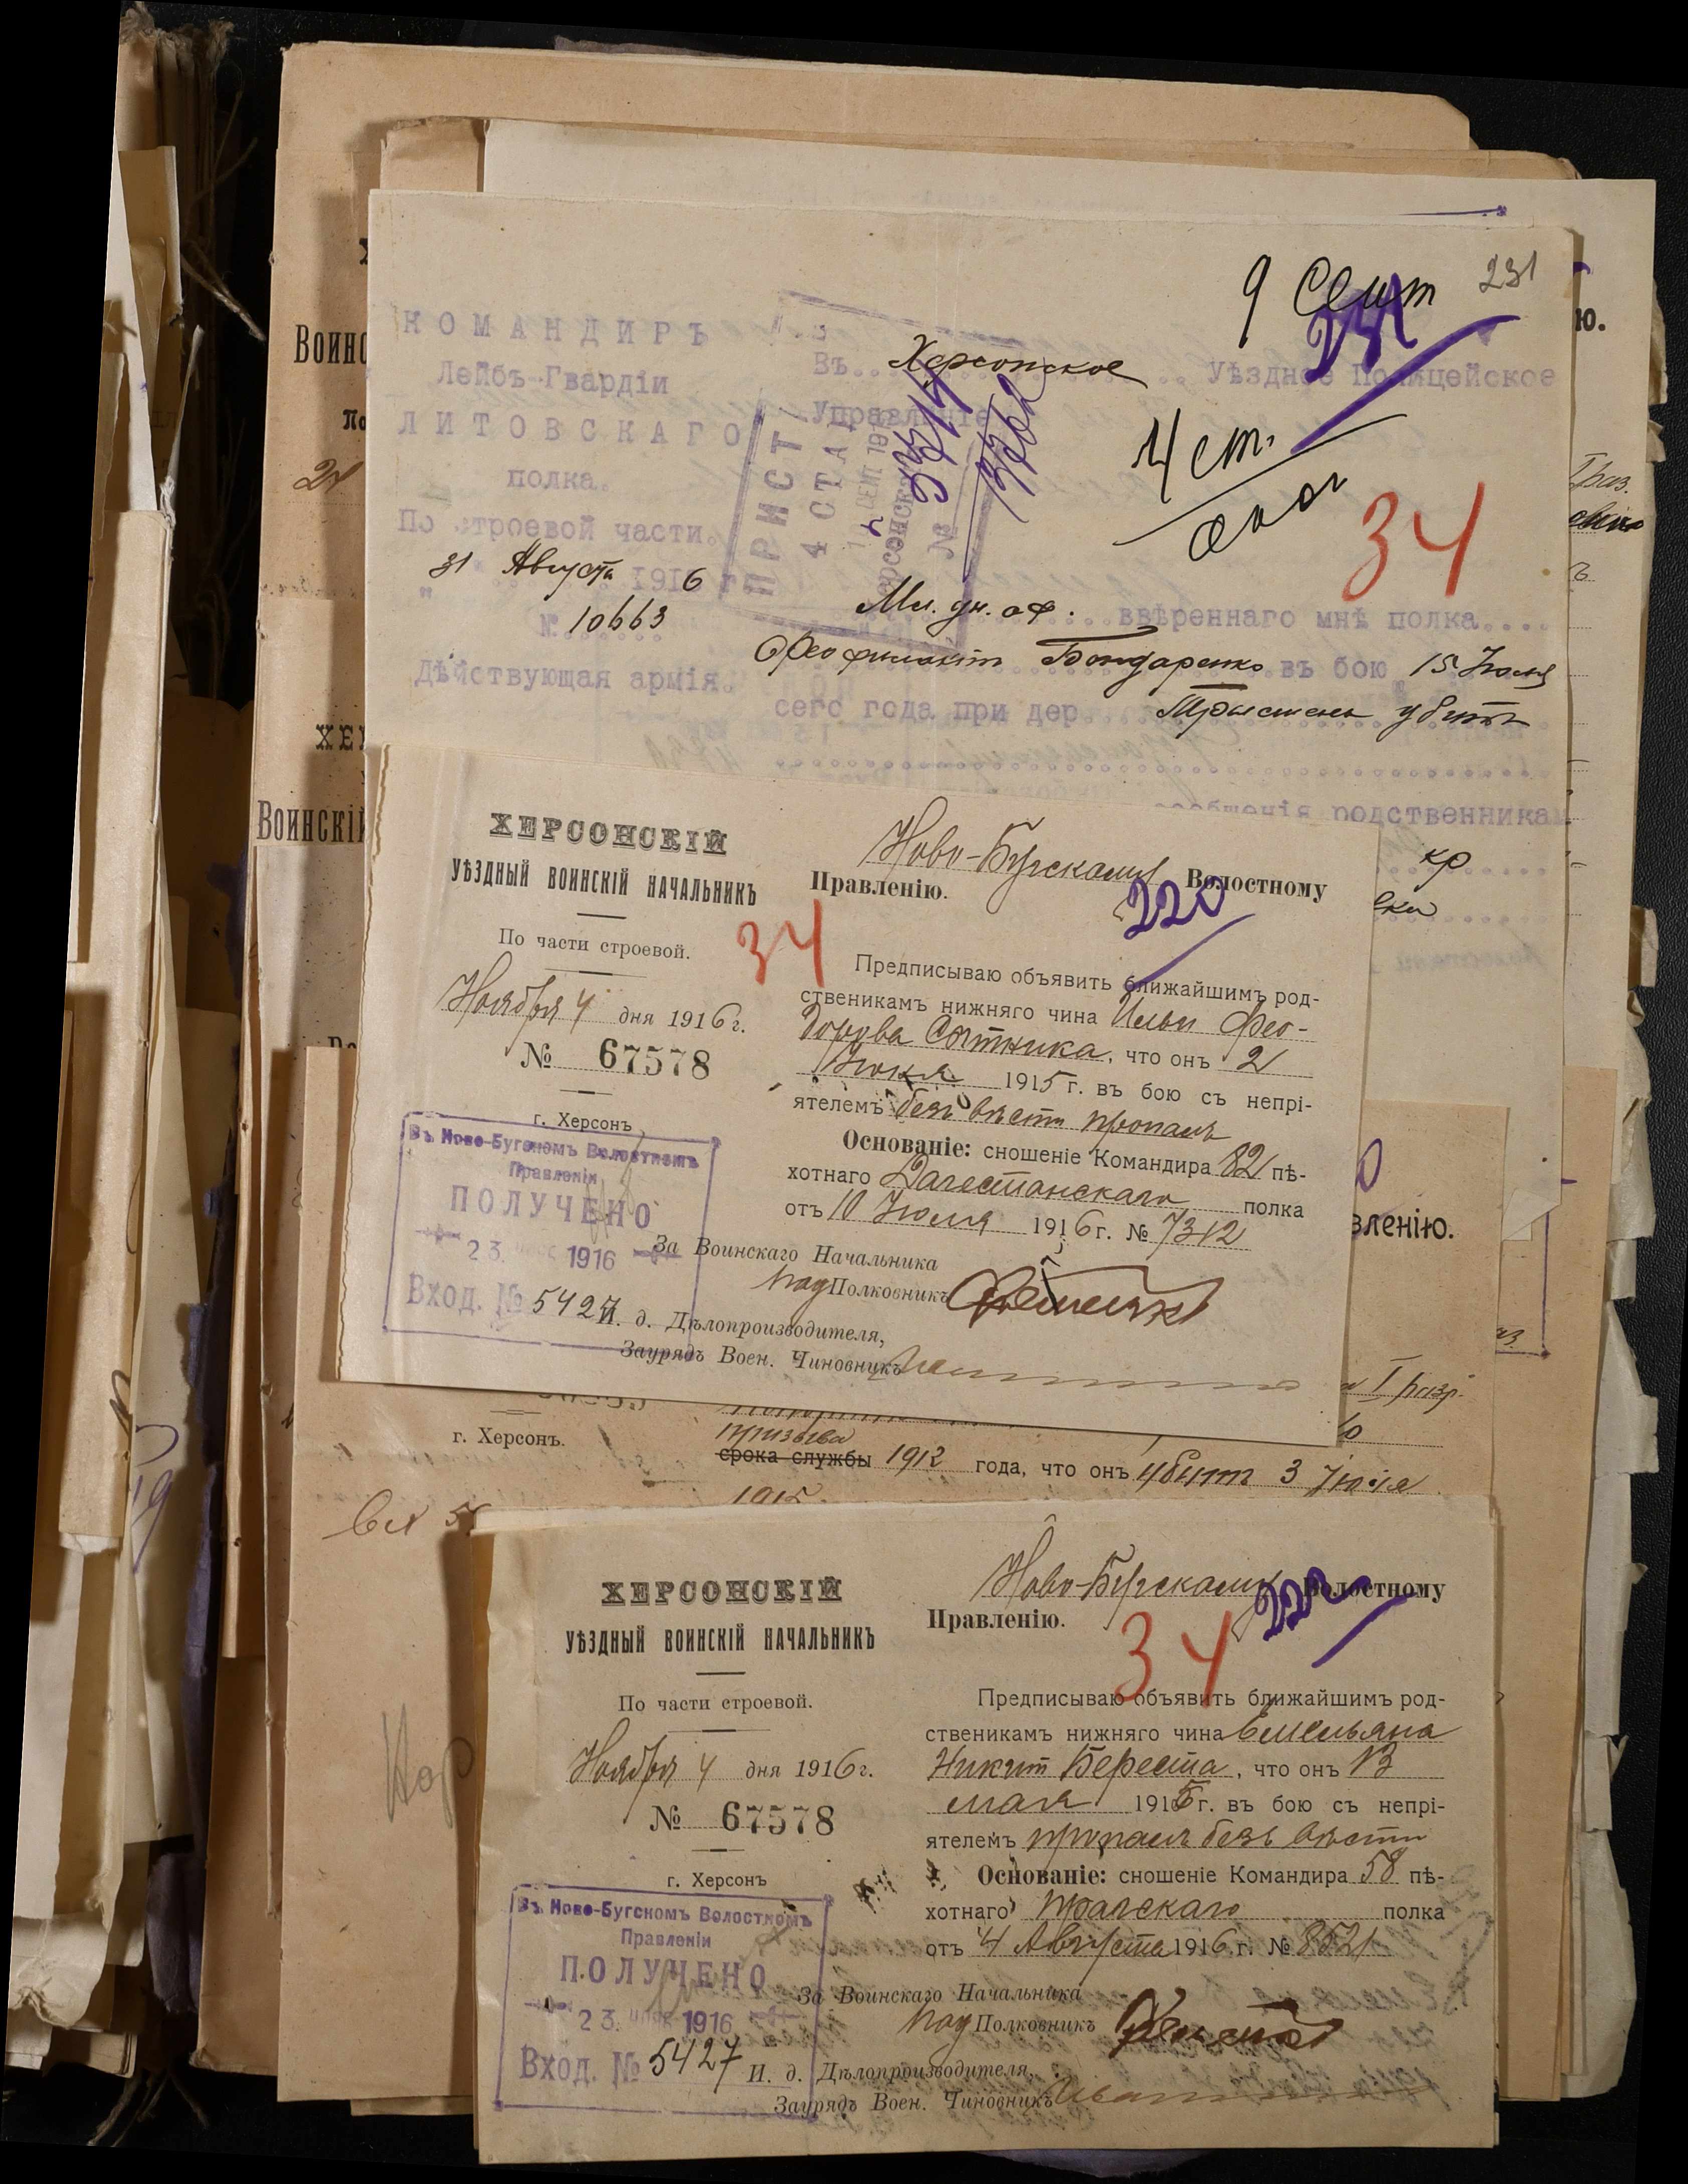 9 Сент 231
231
КОМАНДИРЪ
Лейбъ-Гвардіи
ЛИТОВСКАГО
полка.
По строевой части.
31 Августа 1916
№ 10663
Дѣйствующая армія.
Въ Херсонское Уѣздное Полицейское
Управленіе
ПРИСТ
4 СТА
№
4 ст.
34
Мл. ун. оф. ввѣреннаго мнѣ полка
Феофилактъ Бондаренко въ бою 15 Іюля
сего года при дер. Трыстень убитъ
сообщенія родственникам
кр
ХЕРСОНСКІЙ
УѢЗДНЫЙ ВОИНСКІЙ НАЧАЛЬНИКЪ
По части строевой.
Ноября 4 дня 1916 г.
№ 67578
г. Херсонъ
Въ Ново-Бугскомъ Волостномъ
Правленіи
ПОЛУЧЕНО
23 1916
Вход. № 5427
Ново-Бугскому Волостному
Правленію.
220
34
Предписываю объявить ближайшимъ род-
ственикамъ нижняго чина Ильи Фео-
дорова Сотника, что онъ 21
Іюня 1915 г. въ бою съ непрі-
ятелемъ безъ вѣсти пропалъ
Основаніе: сношеніе Командира 82 пѣ-
хотнаго Дагестанскаго полка
отъ 10 Іюля 1916 г. № 7312
За Воинскаго Начальника
подПолковникъ
И. д. Дѣлопроизводителя,
Заурядъ Воен. Чиновникъ
г. Херсонъ.
призыва
срока службы 1912 года, что онъ убитъ 3 Іюля
1915
вленію.
I разр.
Вх 5
ХЕРСОНСКІЙ
УѢЗДНЫЙ ВОИНСКІЙ НАЧАЛЬНИКЪ
По части строевой.
Ноября 4 дня 1916 г.
№ 67578
г. Херсонъ
Въ Ново-Бугскомъ Волостномъ
Правленіи
ПОЛУЧЕНО
23 1916
Вход. № 5427
Ново-Бугскому Волостному
Правленію.
222
34
Предписываю объявить ближайшимъ род-
ственикамъ нижняго чина Емельяна
Никит Береста, что онъ 13
мая 1915 г. въ бою съ непрі-
ятелемъ пропалъ безъ вѣсти
Основаніе: сношеніе Командира 58 пѣ-
хотнаго Прагскаго полка
отъ 4 Августа 1916 г. № 8521
За Воинскаго Начальника
подПолковникъ
И. д. Дѣлопроизводителя,
Заурядъ Воен. Чиновникъ